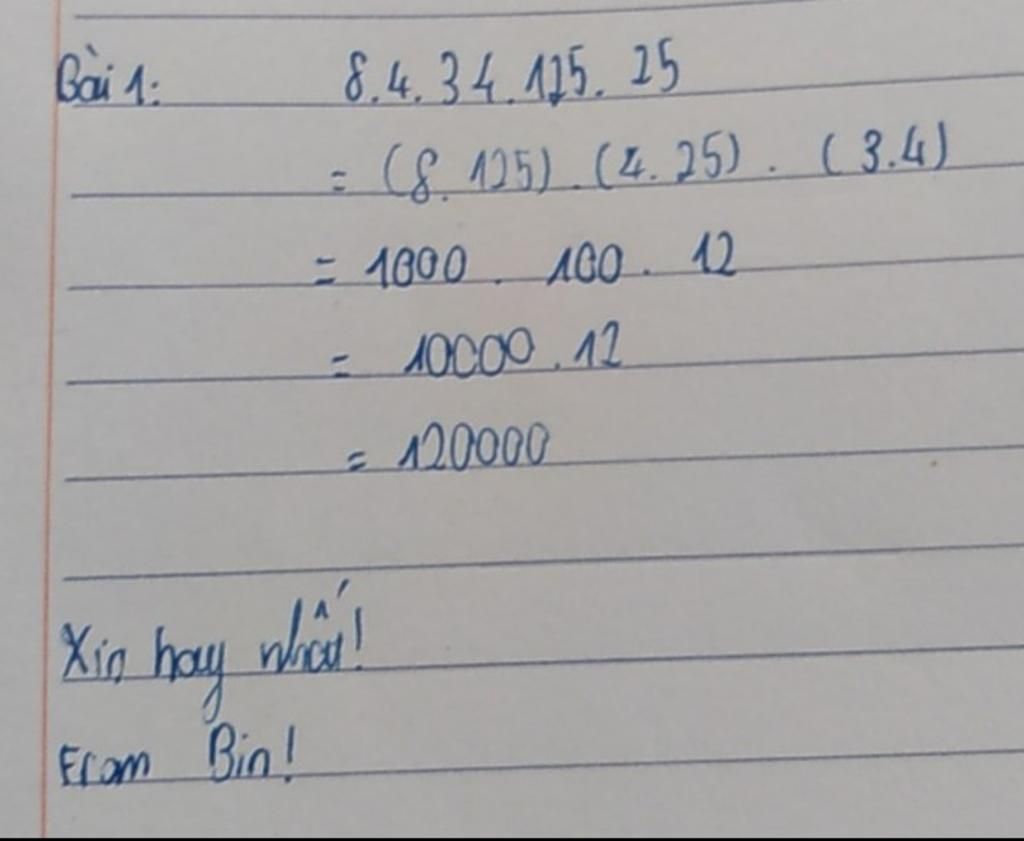 Bài 1: 8.4.34.125.25
= (8.125).(4.25).(3.4)
= 1000.100.12
= 10000.12
= 120000
Xin hay nhất!
From Bin!